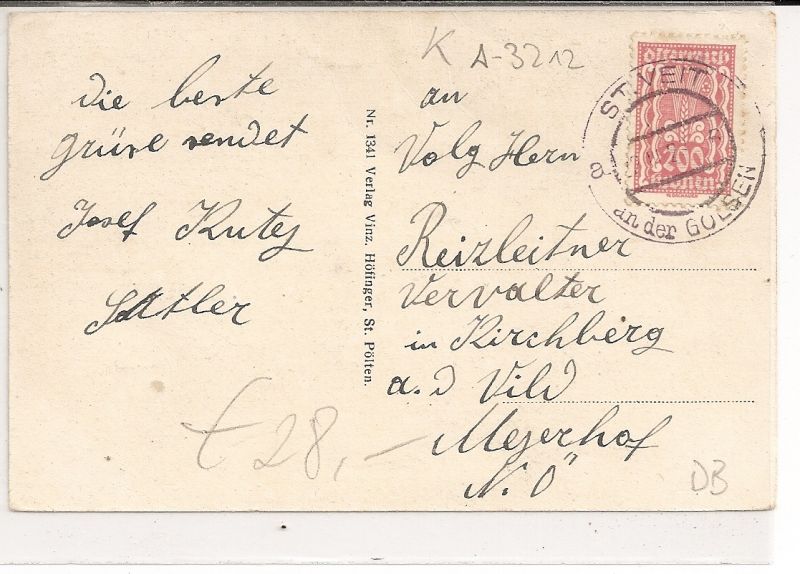 die beste
grüse sendet
Josef Kutej
Sattler
Nr. 1341 Verlag Vinz. Höfinger, St. Pölten.
K A-3212
an
Volg Hern
Reizleitner
Vervalter
in Kirchberg
a. d Vild
Mejerhof
N. Ö
€ 28,-
DB
Österreich
200
Kronen
ST. VEIT
an der GÖLSEN
a